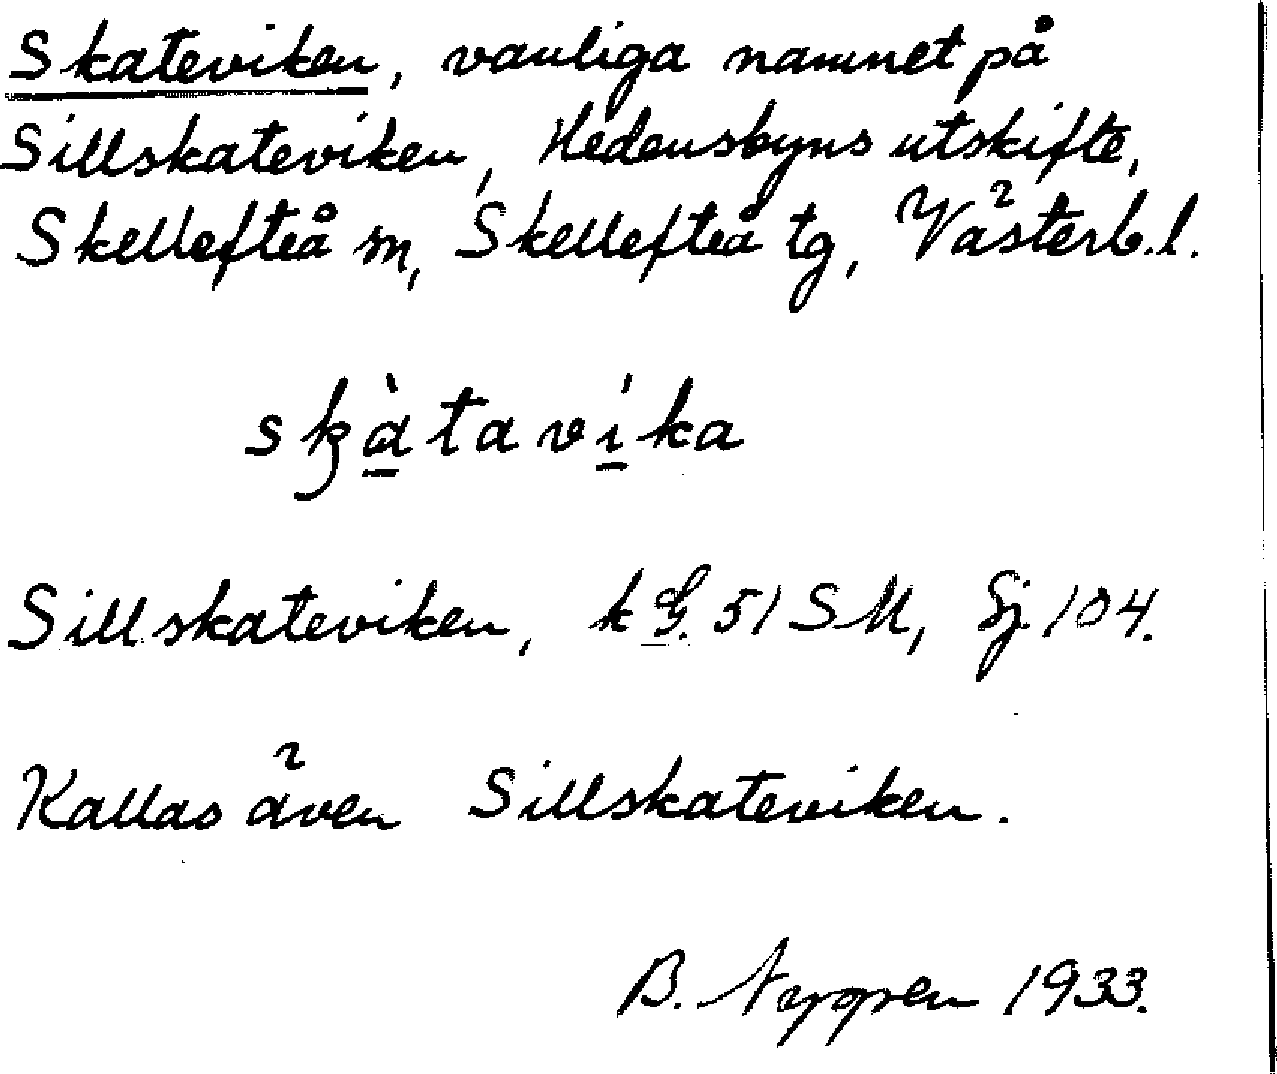 Skateviken, vanliga namnet på
Sillskateviken, Hedensbyns utskifte,
Skellefteå m, Skellefteå tg, Västerb.l.
skàtavíka
Sillskateviken, k G. 51 SM, Sj. 104.
Kallas även Sillskateviken.
B. Nygren 1933.